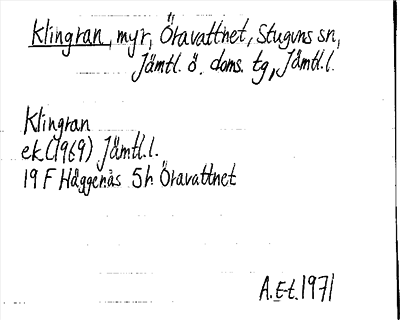 Klingran, myr, Öravattnet, Stuguns sn,
Jämtl. ö. doms. tg, Jämtl.l.
Klingran
ek (1969) Jämtl.l.
19 F Häggenås 5h Öravattnet
A.E-t. 1971